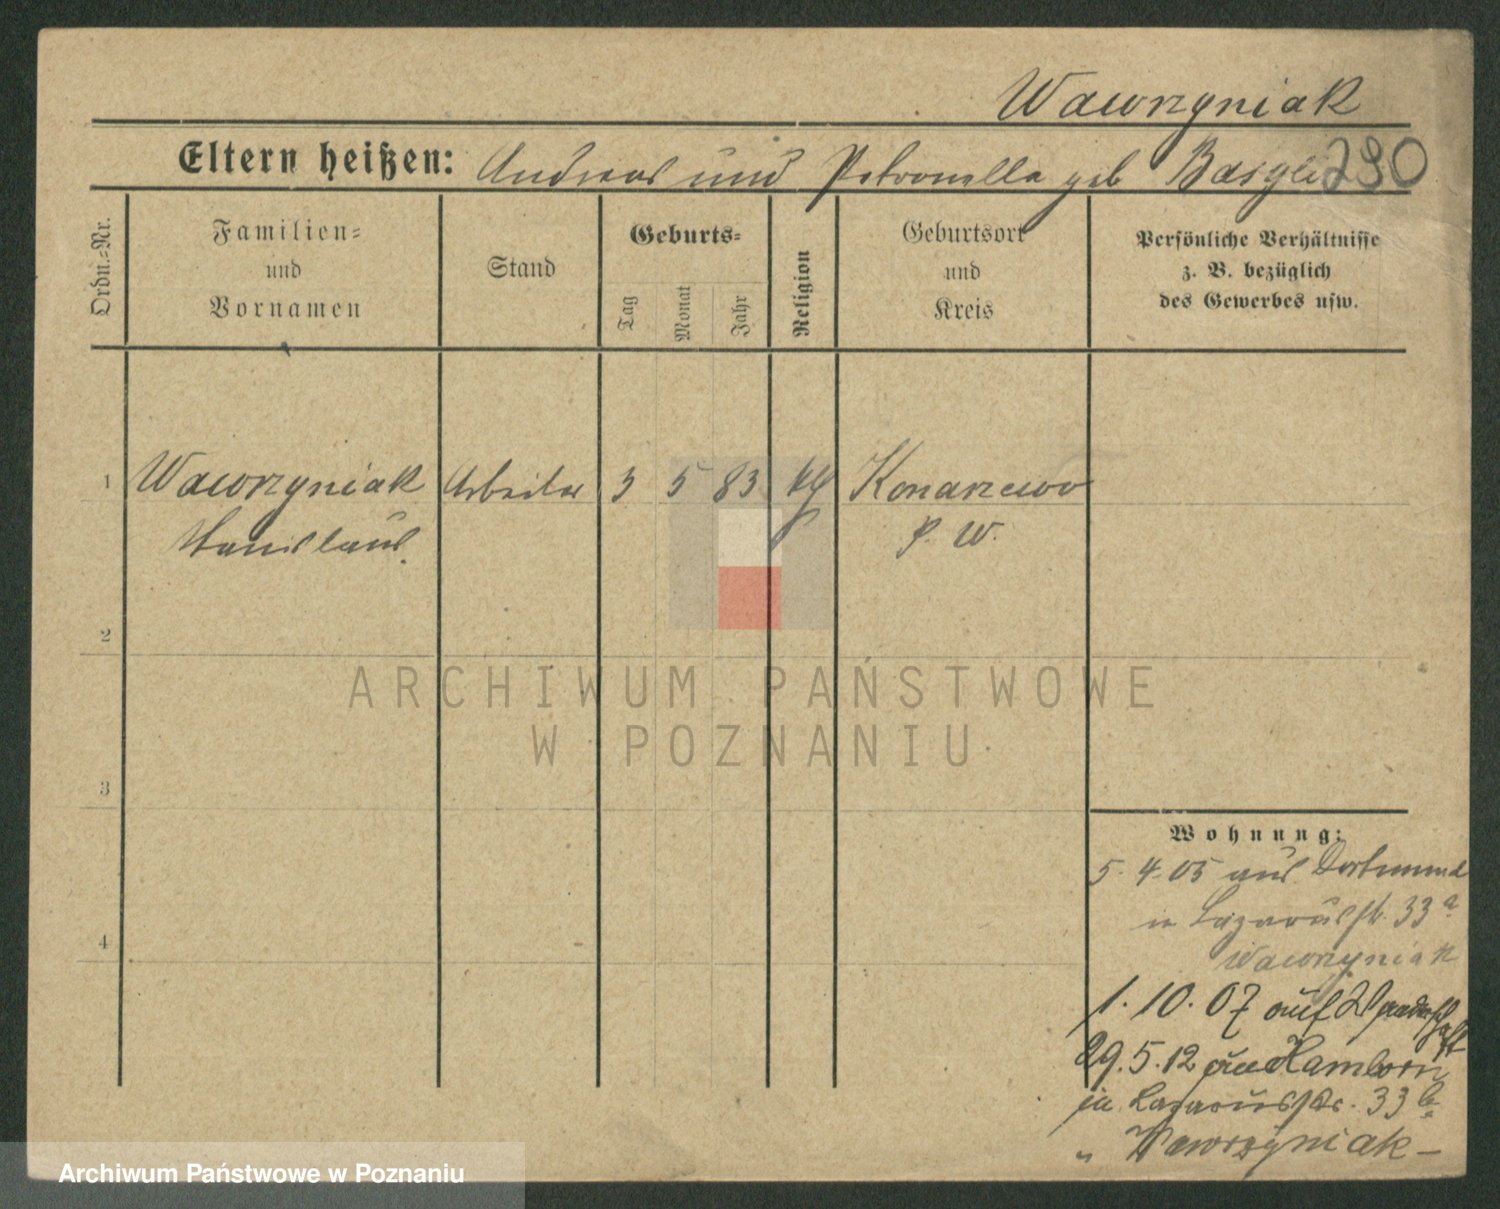 Wawrzyniak
Eltern heißen: Andreas und Petronella geb Basgli
290
Ordn.-Nr.
Familien-
und
Vornamen
Stand
Geburts-
Tag
Monat
Jahr
Religion
Geburtsort
und
Kreis
Persönliche Verhältnisse
z. B. bezüglich
des Gewerbes usw.
1 Wawrzyniak Arbeiter 3 5 83 kg Konarzewo
Stanislaus. P. W.
2
3
4
Wohnung:
5. 4. 05 aus Dortmund
in Lazarusstr. 33a
Wawrzyniak
1. 10. 07 auf Wanderschaft
29. 5. 12 aus Hamborn
in Lazarusstr. 33b
" Wawrzyniak –
ARCHIWUM PAŃSTWOWE
W POZNANIU
Archiwum Państwowe w Poznaniu